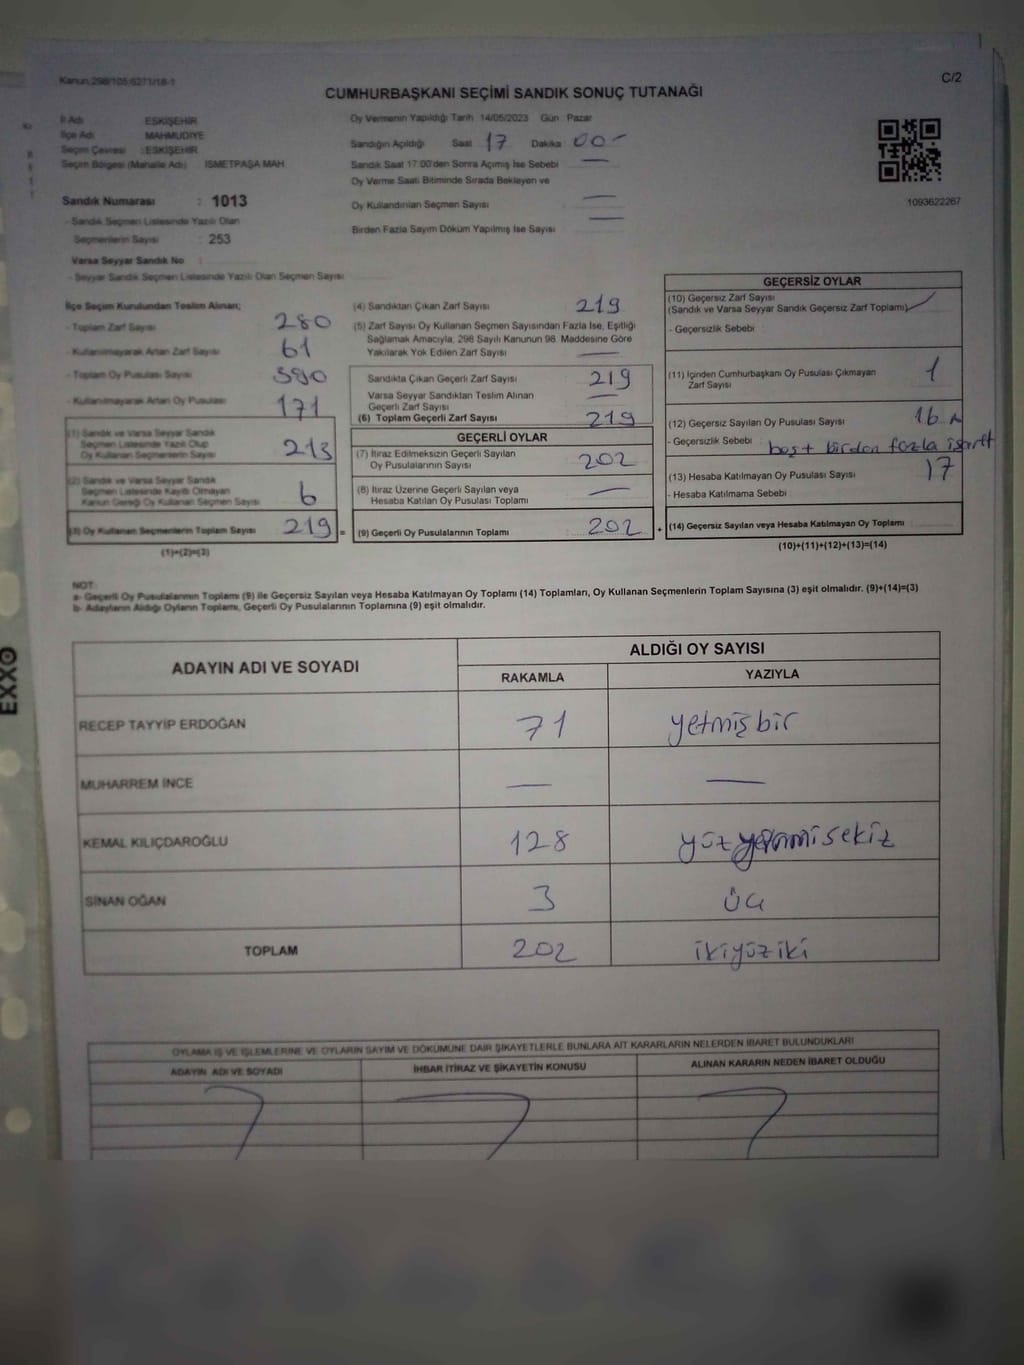 Kanun:298/105,6271/18-1
C/2
CUMHURBAŞKANI SEÇİMİ SANDIK SONUÇ TUTANAĞI
İl Adı ESKİŞEHİR
İlçe Adı MAHMUDİYE
Seçim Çevresi : ESKİŞEHİR
Seçim Bölgesi (Mahalle Adı) İSMETPAŞA MAH
Sandık Numarası : 1013
- Sandık Seçmen Listesinde Yazılı Olan
Seçmenlerin Sayısı : 253
Varsa Seyyar Sandık No :
- Seyyar Sandık Seçmen Listesinde Yazılı Olan Seçmen Sayısı:
Oy Vermenin Yapıldığı Tarih 14/05/2023 Gün Pazar
Sandığın Açıldığı Saat 17 Dakika 00-
Sandık Saat 17:00'den Sonra Açımış İse Sebebi —
Oy Verme Saati Bitiminde Sırada Bekleyen ve
Oy Kullandırılan Seçmen Sayısı —
Birden Fazla Sayım Döküm Yapılmış İse Sayısı —
1093622267
İlçe Seçim Kurulundan Teslim Alınan;
- Toplam Zarf Sayısı 280
- Kullanılmayarak Artan Zarf Sayısı 61
- Toplam Oy Pusulası Sayısı
- Kullanılmayarak Artan Oy Pusulası 171
(1) Sandık ve Varsa Seyyar Sandık
Seçmen Listesinde Yazılı Olup
Oy Kullanan Seçmenlerin Sayısı 213
(2) Sandık ve Varsa Seyyar Sandık
Seçmen Listesinde Kayıtlı Olmayan
Kanun Gereği Oy Kullanan Seçmen Sayısı 6
(3) Oy Kullanan Seçmenlerin Toplam Sayısı 219 =
(1)+(2)=(3)
(4) Sandıktan Çıkan Zarf Sayısı 219
(5) Zarf Sayısı Oy Kullanan Seçmen Sayısından Fazla İse, Eşitliği
Sağlamak Amacıyla, 298 Sayılı Kanunun 98. Maddesine Göre
Yakılarak Yok Edilen Zarf Sayısı —
Sandıkta Çıkan Geçerli Zarf Sayısı 219
Varsa Seyyar Sandıktan Teslim Alınan
Geçerli Zarf Sayısı —
(6) Toplam Geçerli Zarf Sayısı 219
GEÇERLİ OYLAR
(7) İtiraz Edilmeksizin Geçerli Sayılan
Oy Pusulalarının Sayısı 202
(8) İtiraz Üzerine Geçerli Sayılan veya
Hesaba Katılan Oy Pusulası Toplamı —
(9) Geçerli Oy Pusulalarının Toplamı : 202 +
GEÇERSİZ OYLAR
(10) Geçersiz Zarf Sayısı
(Sandık ve Varsa Seyyar Sandık Geçersiz Zarf Toplamı)
- Geçersizlik Sebebi
(11) İçinden Cumhurbaşkanı Oy Pusulası Çıkmayan
Zarf Sayısı 1
(12) Geçersiz Sayılan Oy Pusulası Sayısı 16
- Geçersizlik Sebebi : boş + birden fazla işaret
(13) Hesaba Katılmayan Oy Pusulası Sayısı 17
- Hesaba Katılmama Sebebi
(14) Geçersiz Sayılan veya Hesaba Katılmayan Oy Toplamı
(10)+(11)+(12)+(13)=(14)
NOT:
a- Geçerli Oy Pusulalarının Toplamı (9) ile Geçersiz Sayılan veya Hesaba Katılmayan Oy Toplamı (14) Toplamları, Oy Kullanan Seçmenlerin Toplam Sayısına (3) eşit olmalıdır. (9)+(14)=(3)
b- Adayların Aldığı Oyların Toplamı, Geçerli Oy Pusulalarının Toplamına (9) eşit olmalıdır.
ADAYIN ADI VE SOYADI
ALDIĞI OY SAYISI
RAKAMLA YAZIYLA
RECEP TAYYİP ERDOĞAN 71 yetmişbir
MUHARREM İNCE — —
KEMAL KILIÇDAROĞLU 128 yüzyirmisekiz
SİNAN OĞAN 3 üç
TOPLAM 202 ikiyüziki
OYLAMA İŞ VE İŞLEMLERİNE VE OYLARIN SAYIM VE DÖKÜMÜNE DAİR ŞİKAYETLERLE BUNLARA AİT KARARLARIN NELERDEN İBARET BULUNDUKLARI
ADAYIN ADI VE SOYADI İHBAR İTİRAZ VE ŞİKAYETİN KONUSU ALINAN KARARIN NEDEN İBARET OLDUĞU
EXXO